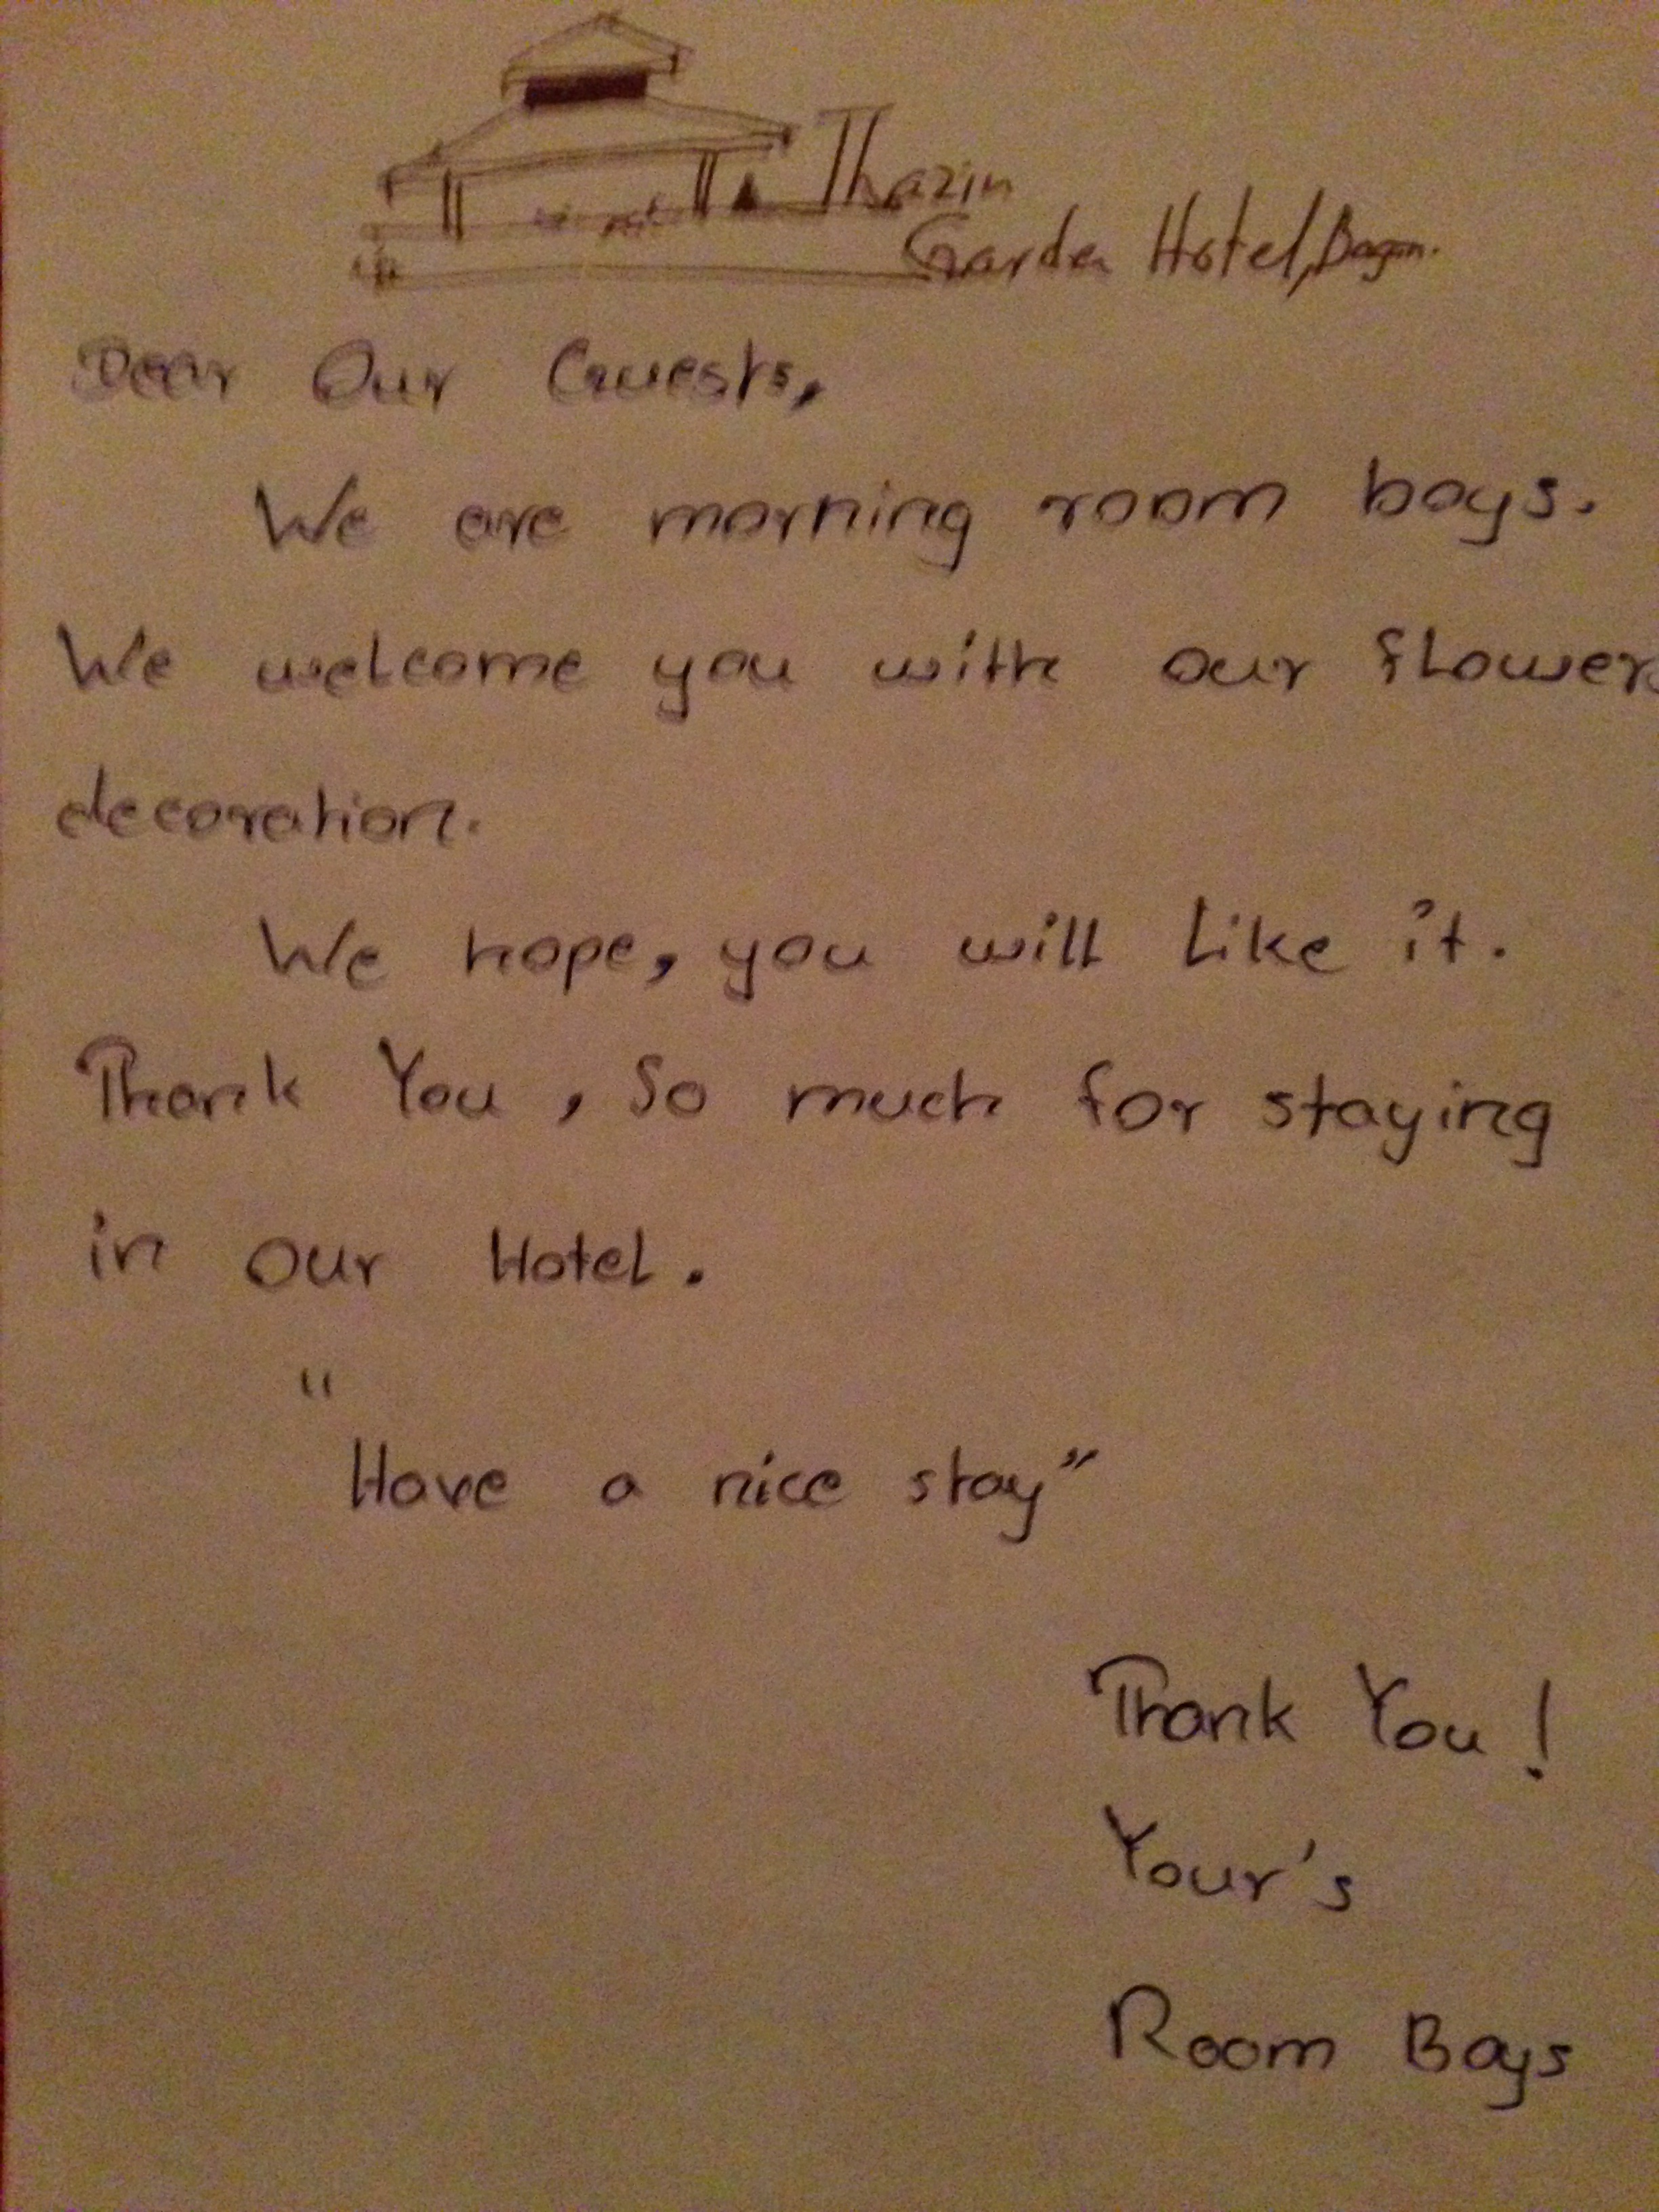 Thazin
Garden Hotel, Bagan.
Dear Our Guests,
We are morning room boys.
We welcome you with our flowers
decoration.
We hope, you will like it.
Thank You, So much for staying
in our Hotel.
"
Have a nice stay"
Thank You!
Your's
Room Boys